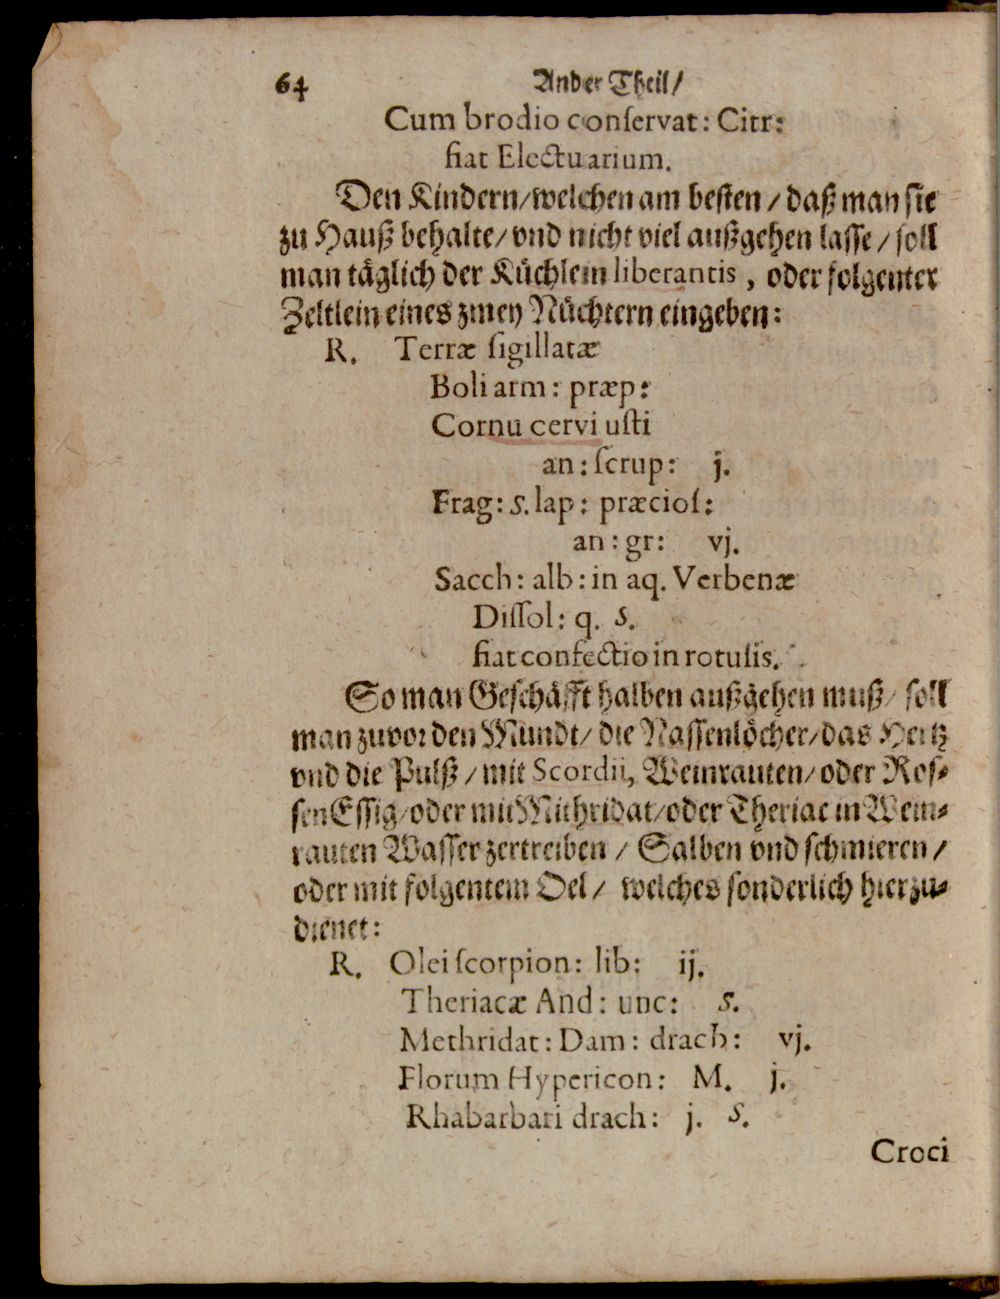 64 Ander Theil/
Cum brodio conſervat: Citr:
fiat Electuarium.
Den Kindern/welchen am beſten / daß man ſie
zu Hauß behalte/ vnd nicht viel außgehen laſſe / ſoll
man täglich der Küchlein liberantis, oder folgenter
Zeltlein eines zwey Nüchtern eingeben:
R. Terræ ſigillatæ
Boli arm: præp:
Cornu cervi uſti
an: ſcrup: j.
Frag: 5. lap: præcioſ:
an: gr: vj.
Sacch: alb: in aq. Verbenæ
Diſſol: q. s.
fiat confectio in rotulis.
So man Geſchäfft halben außgehen muß/ ſoll
man zuvor den Mundt/ die Naſſenlöcher/das Hertz
vnd die Pulß / mit Scordii, Weinrauten/ oder Roſ-
ſen Eſſig/oder mit Mithridat/oder Theriac in Wein-
rauten Waſſer zertreiben / Salben vnd ſchmieren /
oder mit folgentem Oel / welches ſonderlich hierzu-
dienet:
R. Olei ſcorpion: lib: ij.
Theriacæ And: unc: s.
Methridat: Dam: drach: vj.
Florum Hypericon: M. j.
Rhabarbari drach: j. s.
Croci